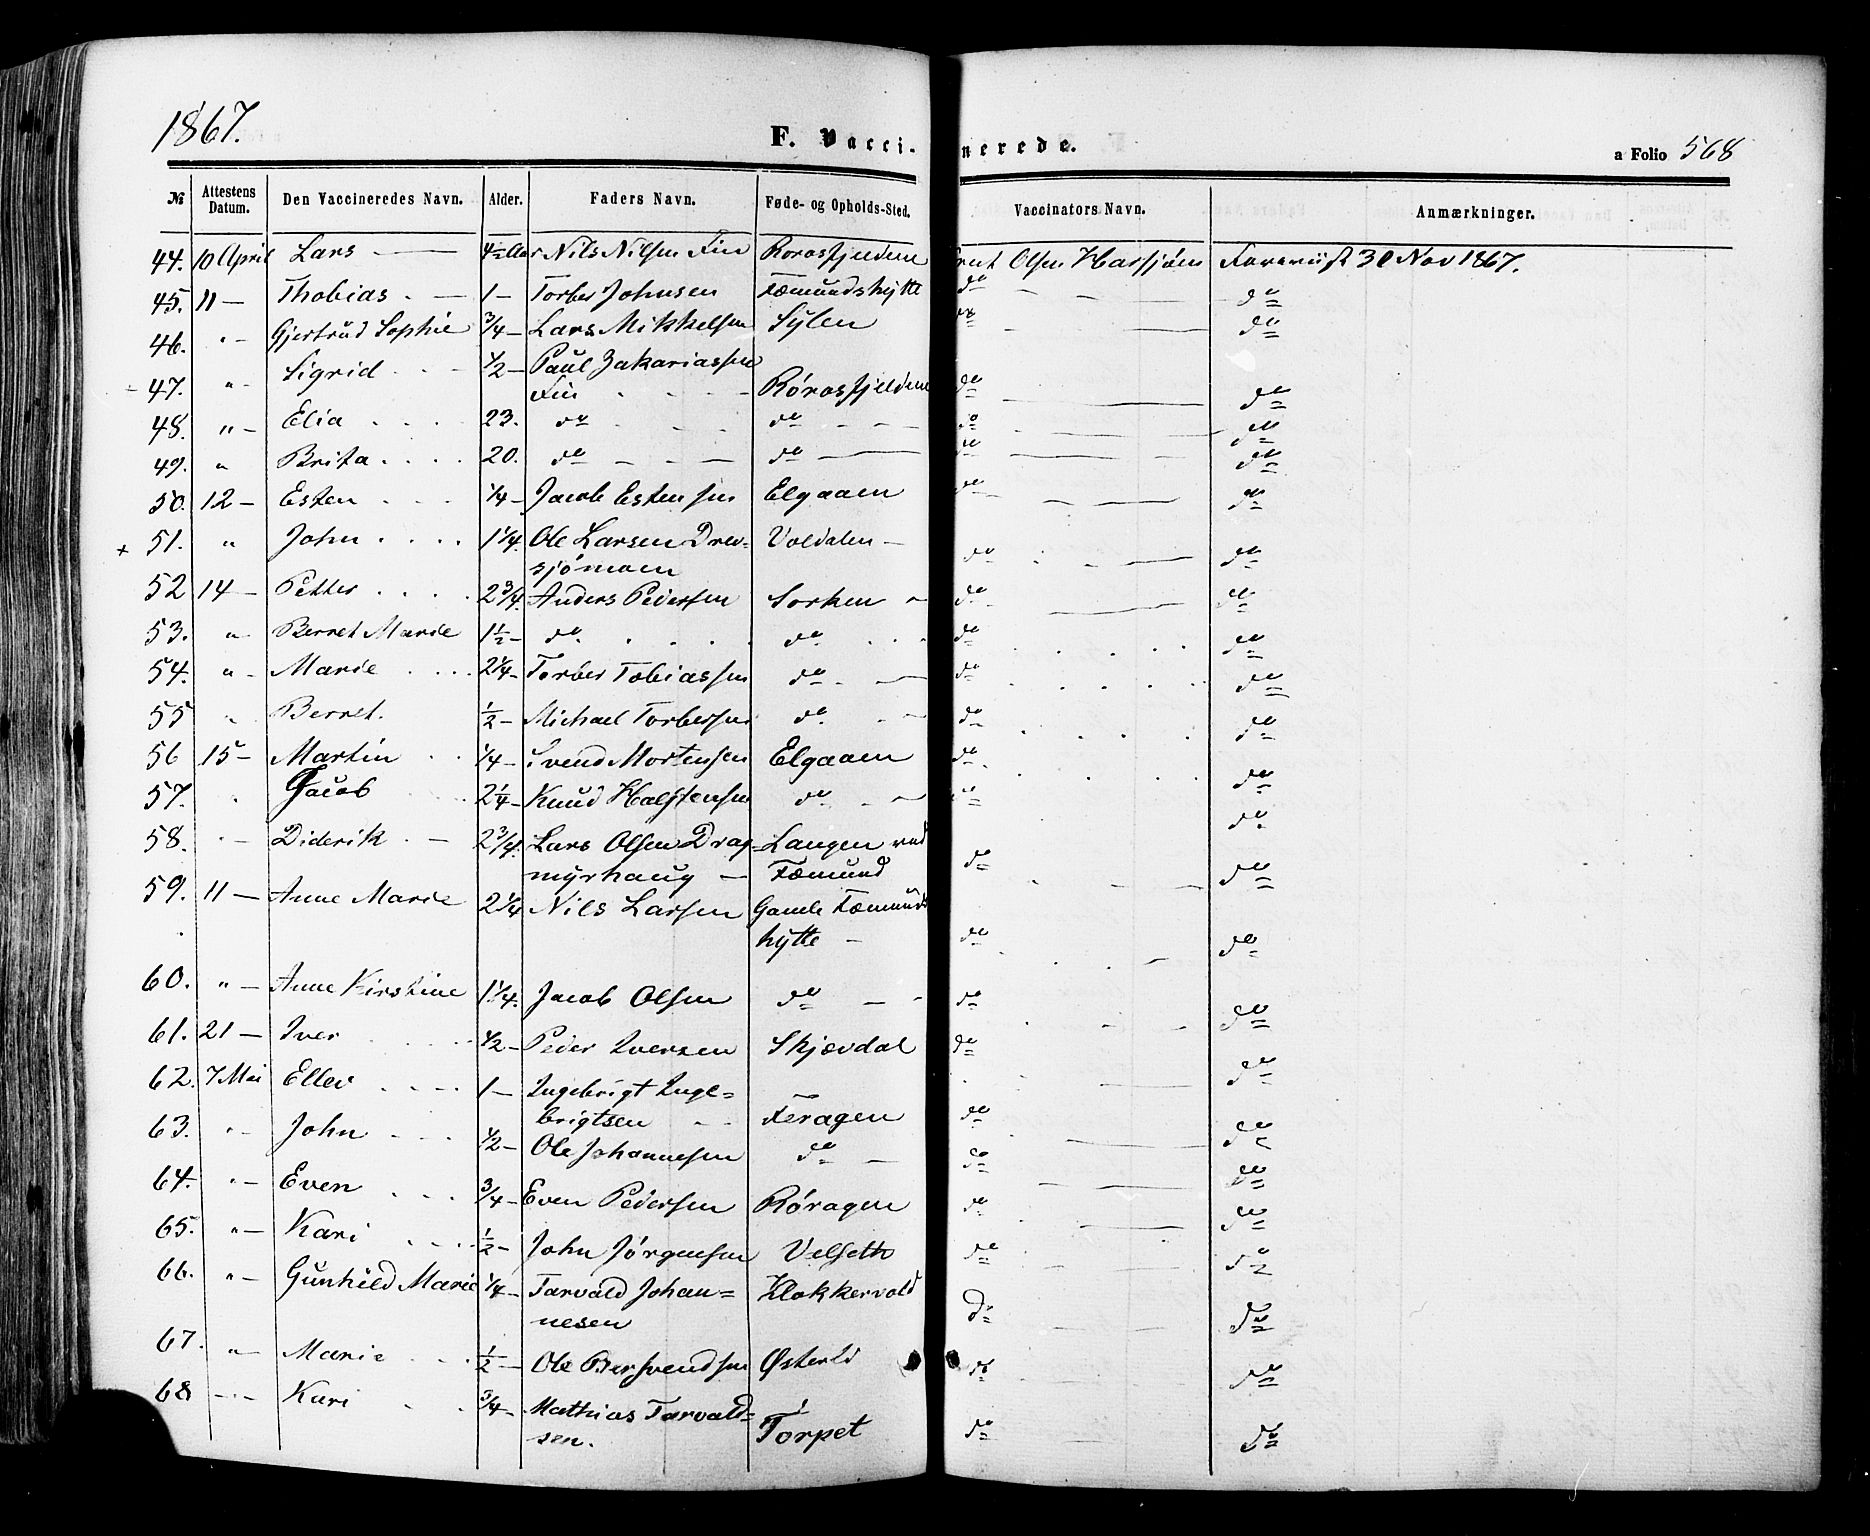 1867.
F. Vaccinerede.
a Folio 568
№ Attestens Datum. Den Vaccineredes Navn. Alder. Faders Navn. Føde- og Opholds-Sted. Vaccinators Navn. Anmærkninger.
44. 10 April Lars 4½ Aar Nils Nilsen Fin Rorosfjeldene Olsen Harsjøen Foreviist 30 Nov 1867.
45. 11 — Thobias . — 1 — Torber Johnsen Fæmundshytte do — do
46. " - Gjertrud Sophie 3/4 — Lars Mikkelsen Sylen do — do
47. " - Sigrid . - 1/2 — Paul Zakariassen
Fin . . . — Rørosfjeldene do — do
48. " — Elia . . . . 23. do . - - do - - — do — do
49. " Brita . . . . 20. do — - — do — do — do
50. 12 — Esten . . . 1/4 — Jacob Estensen Elgaaen do — do
+ 51. " John . . . . 1 1/4. Ole Larsen Drev=
sjømoen Valdalen — do . . — do
52 14 — Petter . . . . 2 3/4. Anders Pedersen Sorken - do — do
53. " - Berret Marie 1½ — do. . . . . do . . . do . . . do
54. " - Marie . . . . 2 1/4 — Torber Tobiassen do - — do . . . do
55 " Berret. ½ — Michael Torbersen do . - — do . . . do
56 15 — Martin . . 1/4 — Svend Mortensen Elgaaen do . . . do
57. " Jacob 2 1/4 — Knud Halstensen do - — do do
58. " - Diderik . — 2 3/4. Lars Olsen Drag=
myrhaug — Langen ved
Fæmund do . - — do
59. 11 — Anne Marie 2 1/4 Nils Larsen Gamle Fæmunds
hytte — do . . — do
60. " — Anne Kirstine 1 1/4. Jacob Olsen do — - do . - — do
61. 21 — Iver . . . . 1/2 — Peder Iversen Skjævdal do do
62. 7 Mai Ellev . . . . 1 — Ingebrigt Inge=
brigtsen . . Feragen do do
63. " - John . . . 1/2 — Ole Johannesen do — do — do
64. " — Even . . . 3/4 — Even Pedersen Røragen do — do
65. " — Kari . . . . ½ — John Jørgensen Velsett do — do
66. " — Gunhild Marie 1/4 — Tarvald Johan=
nesen Klokkervold do - — do
67. " — Marie . . . ½ — Ole Bersvendsen do do
68 " — Kari . . 3/4 — Mathias Tarvald=
sen. Torpet do do